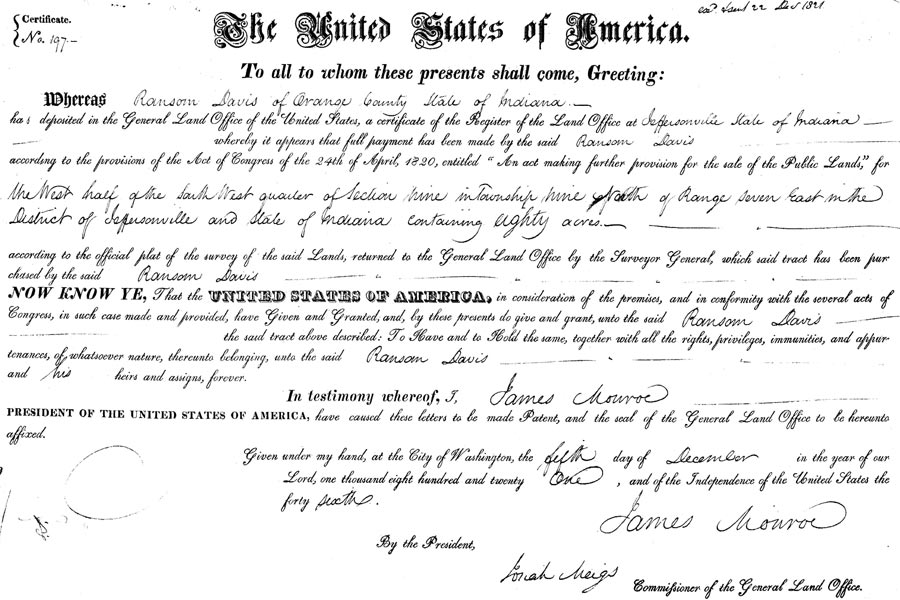 Certificate.
No. 197.
22 Dec 1821
The United States of America.
To all to whom these presents shall come, Greeting:
Whereas Ransom Davis of Orange County State of Indiana
has deposited in the General Land Office of the United States, a certificate of the Register of the Land Office at Jeffersonville State of Indiana
whereby it appears that full payment has been made by the said Ransom Davis
according to the provisions of the Act of Congress of the 24th of April, 1820, entitled “An act making further provision for the sale of the Public Lands,” for
the West half of the South West quarter of Section nine in Township nine North of Range seven East in the
District of Jeffersonville and State of Indiana containing eighty acres.
according to the official plat of the survey of the said Lands, returned to the General Land Office by the Surveyor General, which said tract has been pur
chased by the said Ransom Davis
NOW KNOW YE, That the UNITED STATES OF AMERICA, in consideration of the premises, and in conformity with the several acts of
Congress, in such case made and provided, have Given and Granted, and, by these presents do give and grant, unto the said Ransom Davis
the said tract above described: To Have and to Hold the same, together with all the rights, privileges, immunities, and appur-
tenances, of whatsoever nature, thereunto belonging, unto the said Ransom Davis
and his heirs and assigns, forever.
In testimony whereof, I, James Monroe
PRESIDENT OF THE UNITED STATES OF AMERICA, have caused these letters to be made Patent, and the seal of the General Land Office to be hereunto
affixed.
Given under my hand, at the City of Washington, the fifth day of December in the year of our
Lord, one thousand eight hundred and twenty One, and of the Independence of the United States the
forty sixth.
James Monroe
By the President,
Josiah Meigs
Commissioner of the General Land Office.